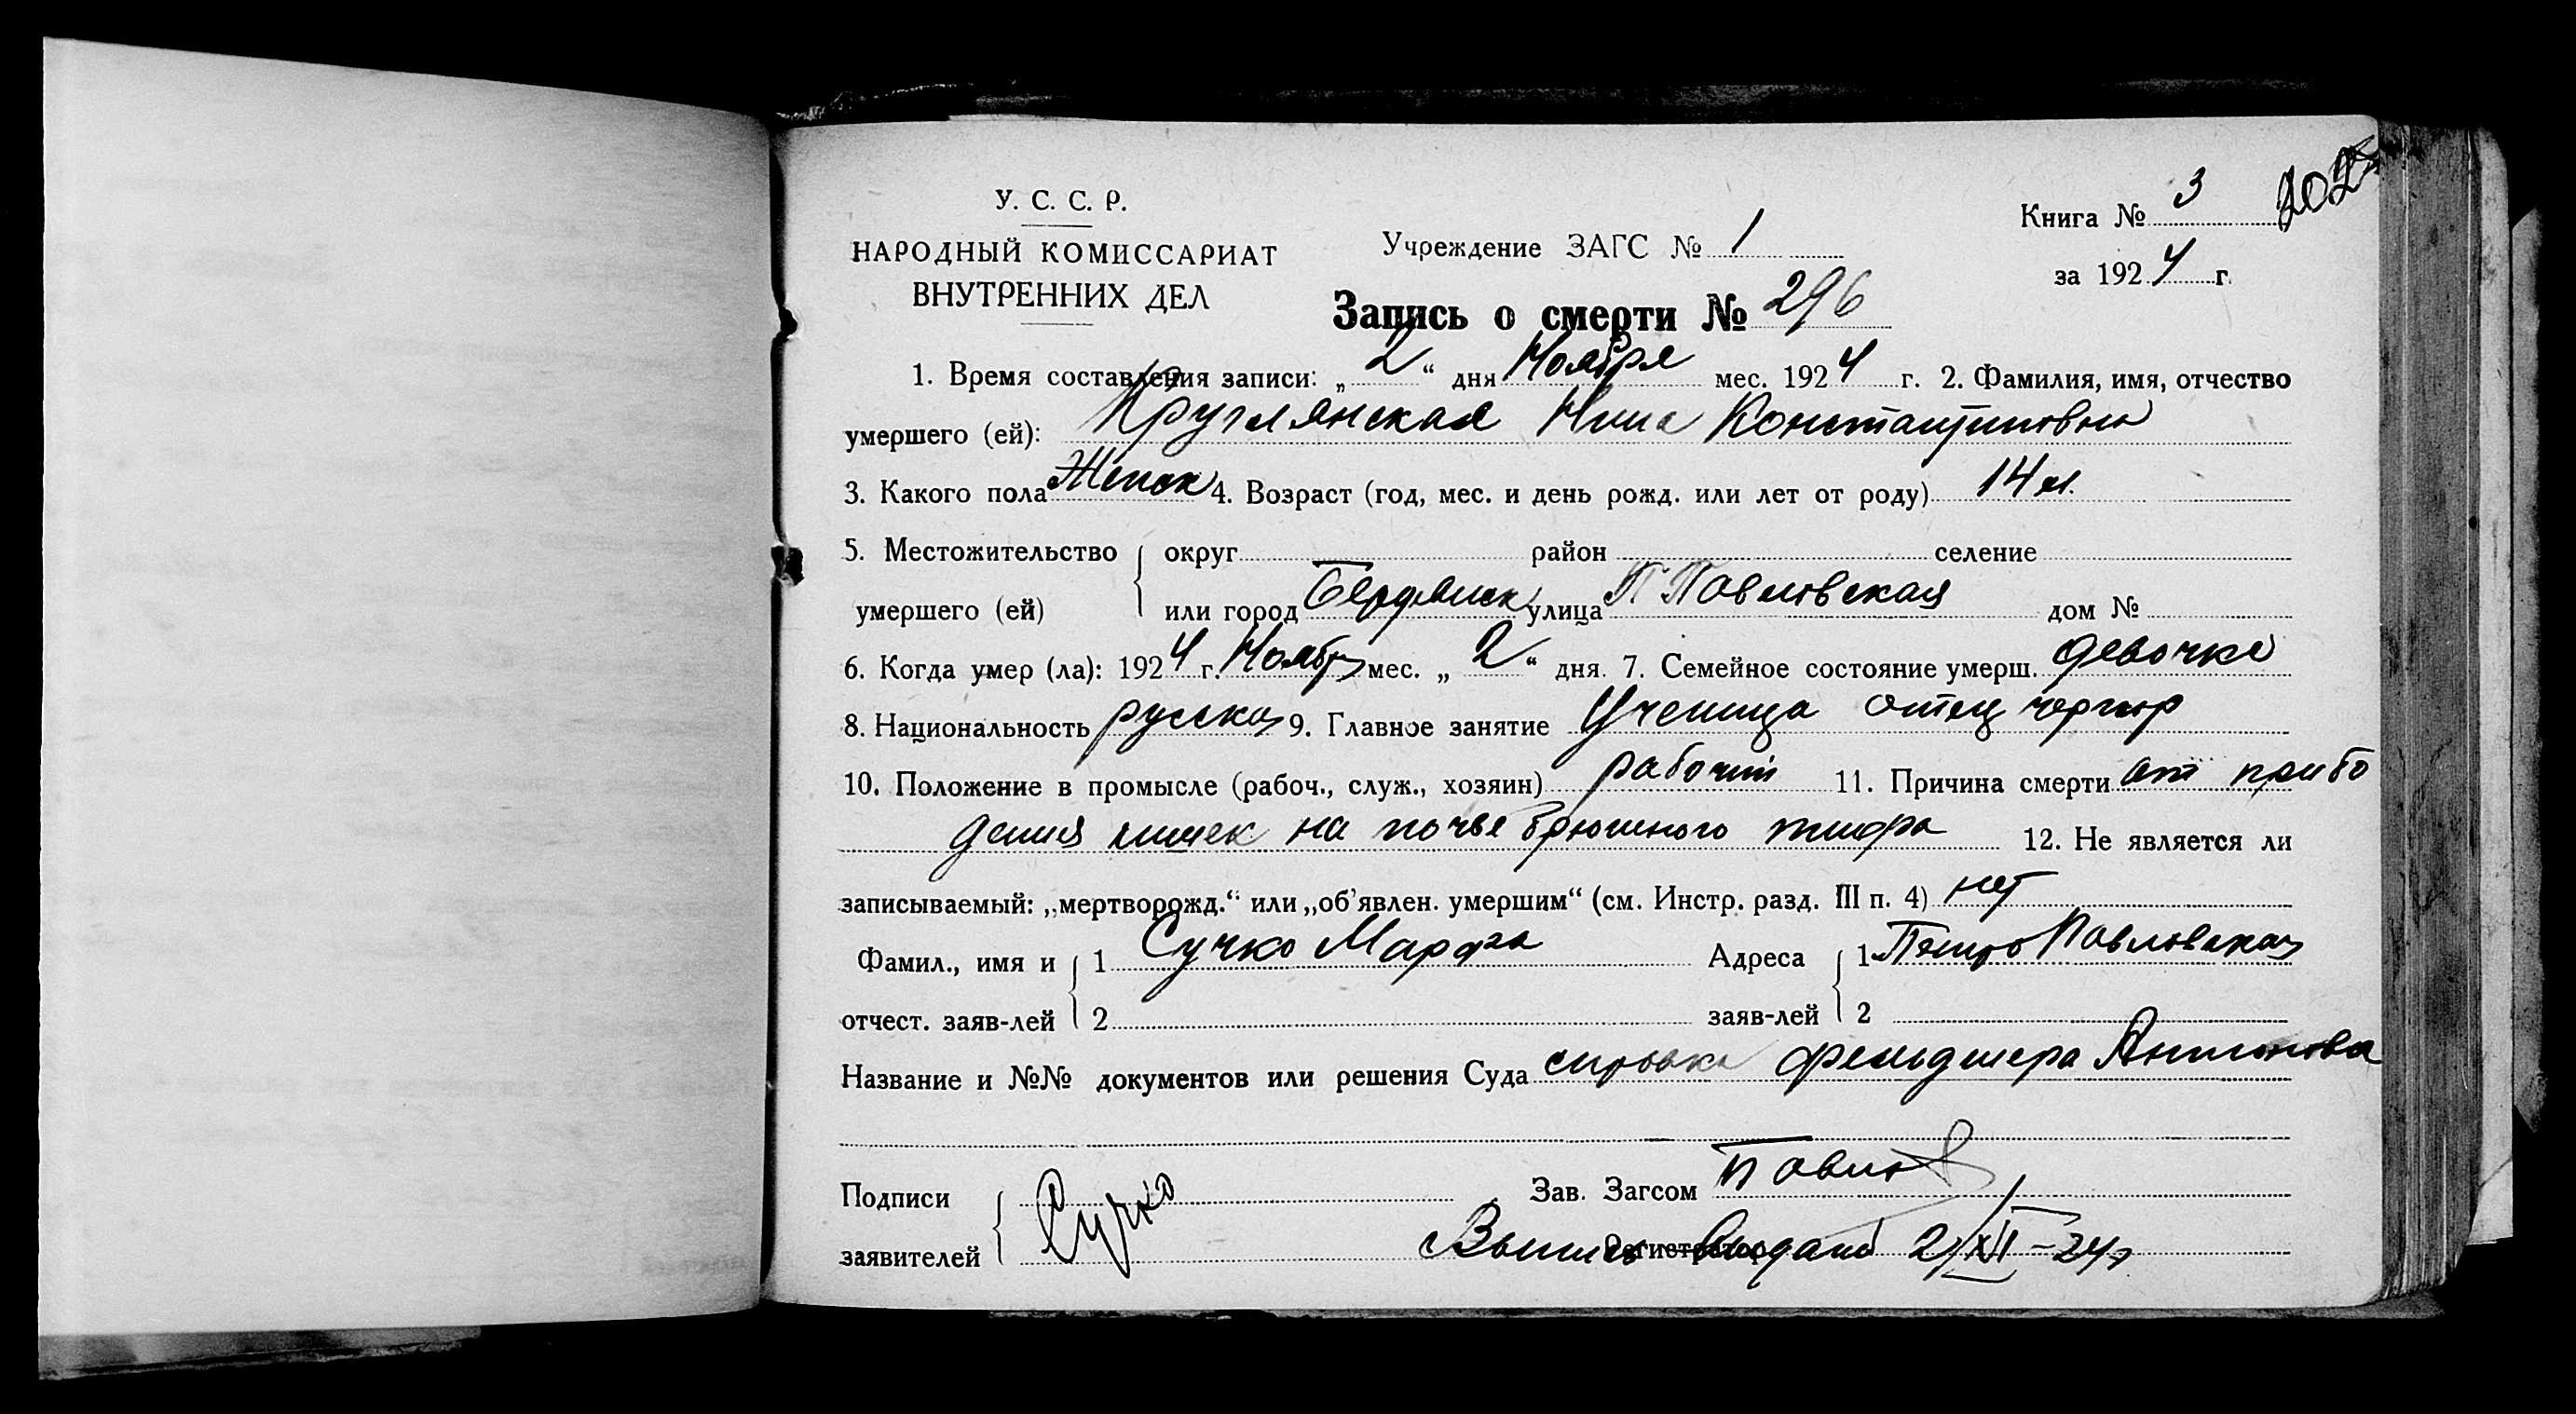 У. С. С. Р.
НАРОДНЫЙ КОМИССАРИАТ
ВНУТРЕННИХ ДЕЛ
Учреждение ЗАГС № 1
Книга № 3
за 1924 г.
Запись о смерти № 296
1. Время составления записи: „2“ дня Ноября мес. 1924 г. 2. Фамилия, имя, отчество
умершего (ей): Круглянская Нина Константиновна
3. Какого пола Женск 4. Возраст (год, мес. и день рожд. или лет от роду) 14 л.
5. Местожительство округ район селение
умершего (ей) или город Бердянск улица П Павловская дом №
6. Когда умер (ла): 1924 г. Ноябр мес. „2“ дня. 7. Семейное состояние умерш. девочка
8. Национальность русская 9. Главное занятие Ученица отец
10. Положение в промысле (рабоч., служ., хозяин) рабочий 11. Причина смерти от пробо
дения кишек на почве брюшного тифа 12. Не является ли
записываемый: „мертворожд.“ или „об'явлен. умершим“ (см. Инстр. разд. III п. 4) нет
Фамил., имя и 1 Сучко Марфа Адреса 1 Петро Павловская
отчест. заяв-лей 2 заяв-лей 2
Название и №№ документов или решения Суда справка фельдшера Антонова
Подписи Зав. Загсом
заявителей Сучко Регистратор Выпись выдана 2/XI-24г